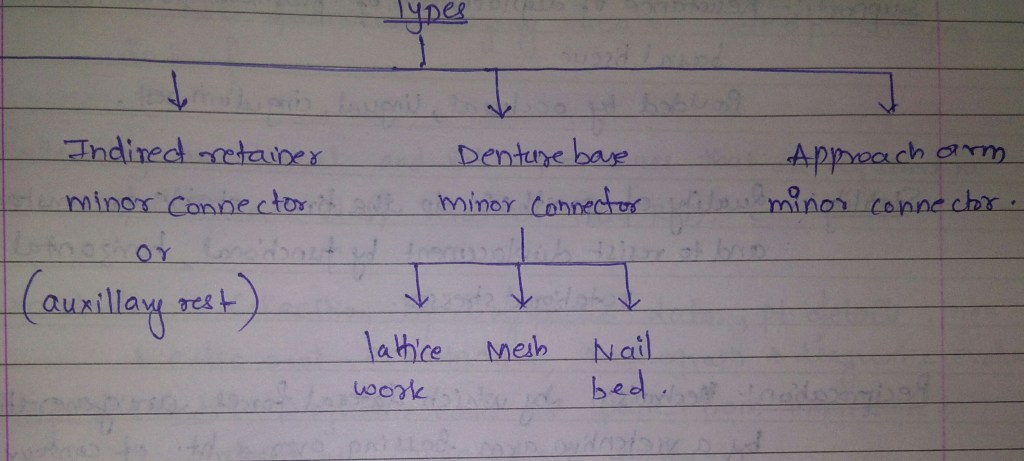 Types
Indirect retainer
minor connector
or
(auxillary rest)
Denture base
minor connector
Approach arm
minor connector.
lattice
work
Mesh
Nail
bed.